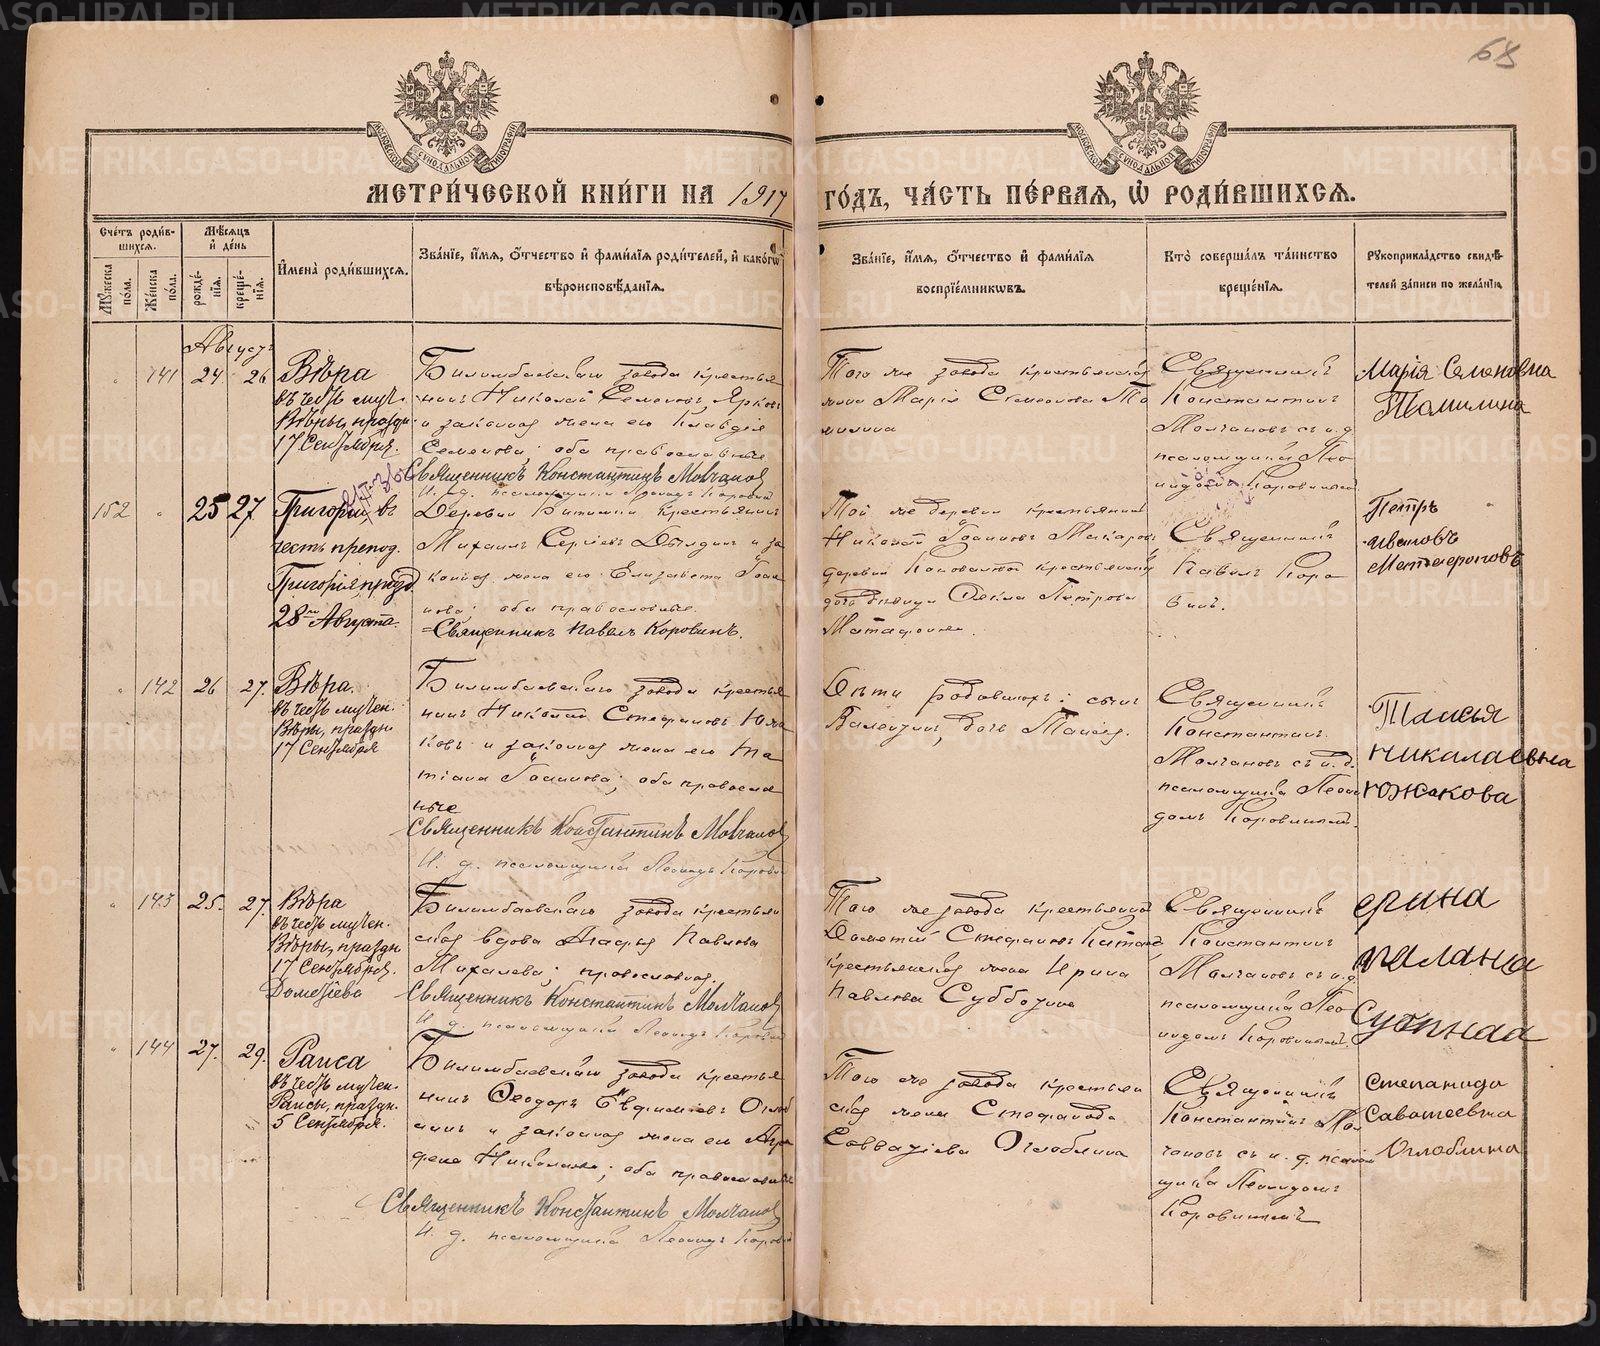 68
МОСКОВСКОЙ СУНОДАЛЬНОЙ ТИПОГРАФІИ
МОСКОВСКОЙ СУНОДАЛЬНОЙ ТИПОГРАФІИ
МЕТРИ́ЧЕСКОЙ КНИ́ГИ НА 1917 ГО́ДЪ, ЧА́СТЬ ПЕ́РВАЯ, Ѡ҆ РОДИ́ВШИХСѦ.
Сче́тъ роди́в-
шихсѧ.
Мꙋ́жеска по́ла.
Же́нска по́ла.
Мѣ́сѧцъ и҆ де́нь
рожде́-
нїѧ.
креще́-
нїѧ.
И҆мена̀ роди́вшихсѧ.
Зва́нїе, и҆́мѧ, ѻ҆́тчество и҆ фами́лїѧ роди́телей, и҆ како́гѡ
вѣроисповѣ́данїѧ.
Зва́нїе, и҆́мѧ, ѻ҆́тчество и҆ фами́лїѧ
воспрїе́мниковъ.
Кто̀ соверша́лъ та́инство
креще́нїѧ.
Рꙋкоприкла́дство свидѣ́-
телей за́писи по жела́нїю.
Августъ
141 24 26
Вѣра
въ честь муч.
Вѣры, праздн.
17 Сентября.
Билимбаевскаго завода крестья
нинъ Николай Семеновъ Ярковъ
и законная жена его Клавдія
Семенова; оба православные
Священникъ Константинъ Молчанов
И. д. псаломщика Леонидъ Коровин
Того же завода крестьянская
Марія Стефанова То
милина
Священникъ
Константинъ
Молчановъ съ и. д.
псаломщика Лео
нидомъ Коровинымъ
Марія Семеновна
Томилина
152 25 27
Григорій въ
честь препод.
Григорія, празд.
28го Августа.
Деревни Битимки крестьянинъ
Михаилъ Сергіевъ Дылдинъ и за
конная жена его Елизавета Іоан
нова; оба православные.
Священникъ Павелъ Коровинъ.
Той же деревни крестьянинъ
Николай Іоанновъ Макаровъ
деревни Коноваловой крестьянская
дочь девица Ѳекла Петрова
Матафонова.
Священникъ
Павелъ Коро
винъ.
Петръ
Ивановъ
142 26 27.
Вѣра.
въ честь мучен.
Вѣры, праздн.
17 Сентября
Билимбаевскаго завода крестья
нинъ Николай Стефановъ Южа
ковъ и законная жена его Та
тіана Іоаннова; оба православ
ные
Священникъ Константинъ Молчанов
И. д. псаломщика Леонидъ Коровин
Дѣти родившихъ: сынъ
Валентинъ, дочь Таисія.
Священникъ
Константинъ
Молчановъ съ и. д.
псаломщика Леони
домъ Коровинымъ.
Таисья
Николаевна
Южакова
143 25. 27.
Вѣра
въ честь мучен.
Вѣры, праздн.
17 Сентября.
Дометіева
Билимбаевскаго завода крестьян
ская вдова Агафья Павлова
Михалева; православная.
Священникъ Константинъ Молчанов
И. д. псаломщика Леонидъ Коровин
Того же завода крестьянинъ
Дометій Стефановъ
крестьянская жена Ирина
Павлова Субботина
Священникъ
Константинъ
Молчановъ съ и. д.
псаломщика Лео
нидомъ Коровинымъ.
ерина
144 27. 29.
Раиса
въ честь мучен.
Раисы, праздн.
5 Сентября.
Билимбаевскаго завода крестья
нинъ Ѳеодоръ Евфиміевъ Оглоб
линъ и законная жена его Агри
Николаева; оба православные
Священникъ Константинъ Молчанов
И. д. псаломщика Леонидъ Коровин
Того же завода крестьян
ская жена Стефанида
Савватіева Оглоблина
Священникъ
Константинъ Мол
чановъ съ и. д. псалом
щика Леонидомъ
Коровинымъ
Степанида
Савотеевна
Оглоблина
METRIKI.GASO-URAL.RU